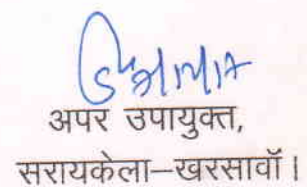 अपर उपायुक्त,
सरायकेला–खरसावॉ।